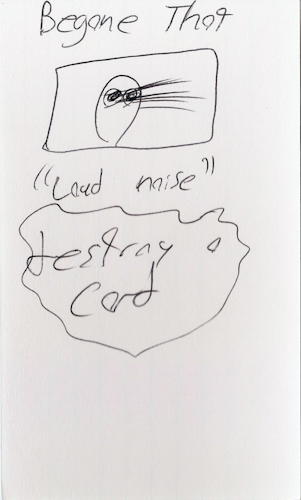 Begone That
"Loud noise"
destroy a
Card